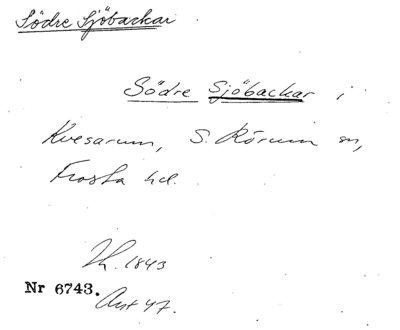 Södre Sjöbackar
Södre Sjöbackar i
Kvesarum, S. Rörum sn,
Frosta hd.
1843
Nr 6743.
Akt 47.